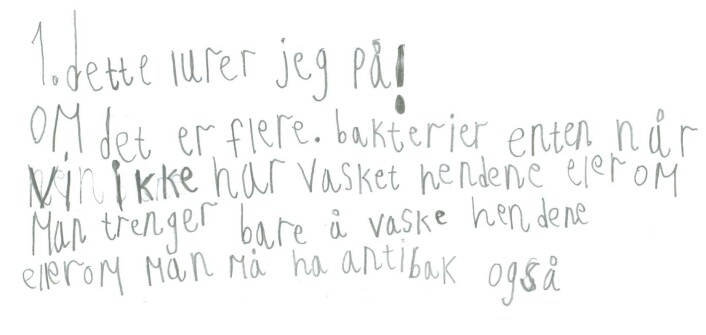 1. dette lurer jeg på!
OM det er flere. bakterier enten når
Vi ikke har vasket hendene elerom
Man trenger bare å vaske hendene
ellerom Man må ha antibak også